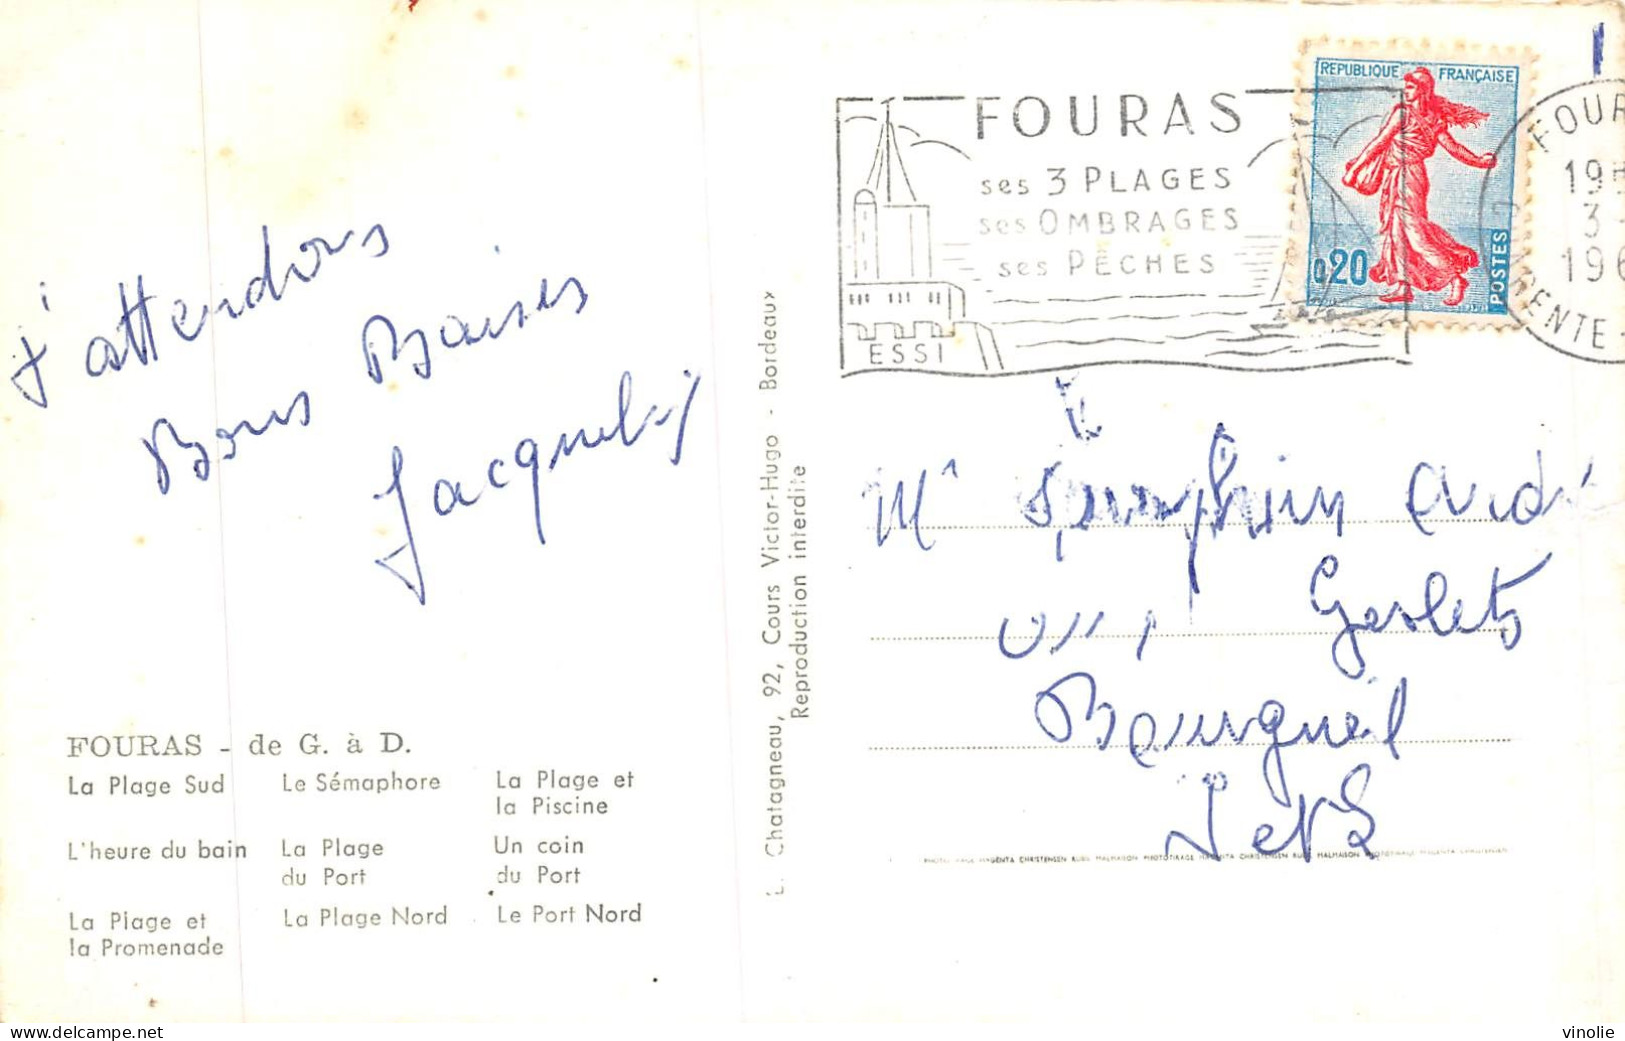 REPUBLIQUE FRANÇAISE
0,20
POSTES
FOURAS
ses 3 PLAGES
ses OMBRAGES
ses PÊCHES
ESSI
FOUR
3 -
196
ENTE -
J'attendons
Bons Baisers
Jacquel
FOURAS - de G. à D.
La Plage Sud Le Sémaphore La Plage et la Piscine
L'heure du bain La Plage du Port Un coin du Port
La Plage et la Promenade La Plage Nord Le Port Nord
L. Chatagneau, 92, Cours Victor-Hugo - Bordeaux
Reproduction interdite
Mr Seraphin André
Geslets
Bourgueil
I et L
vinolie